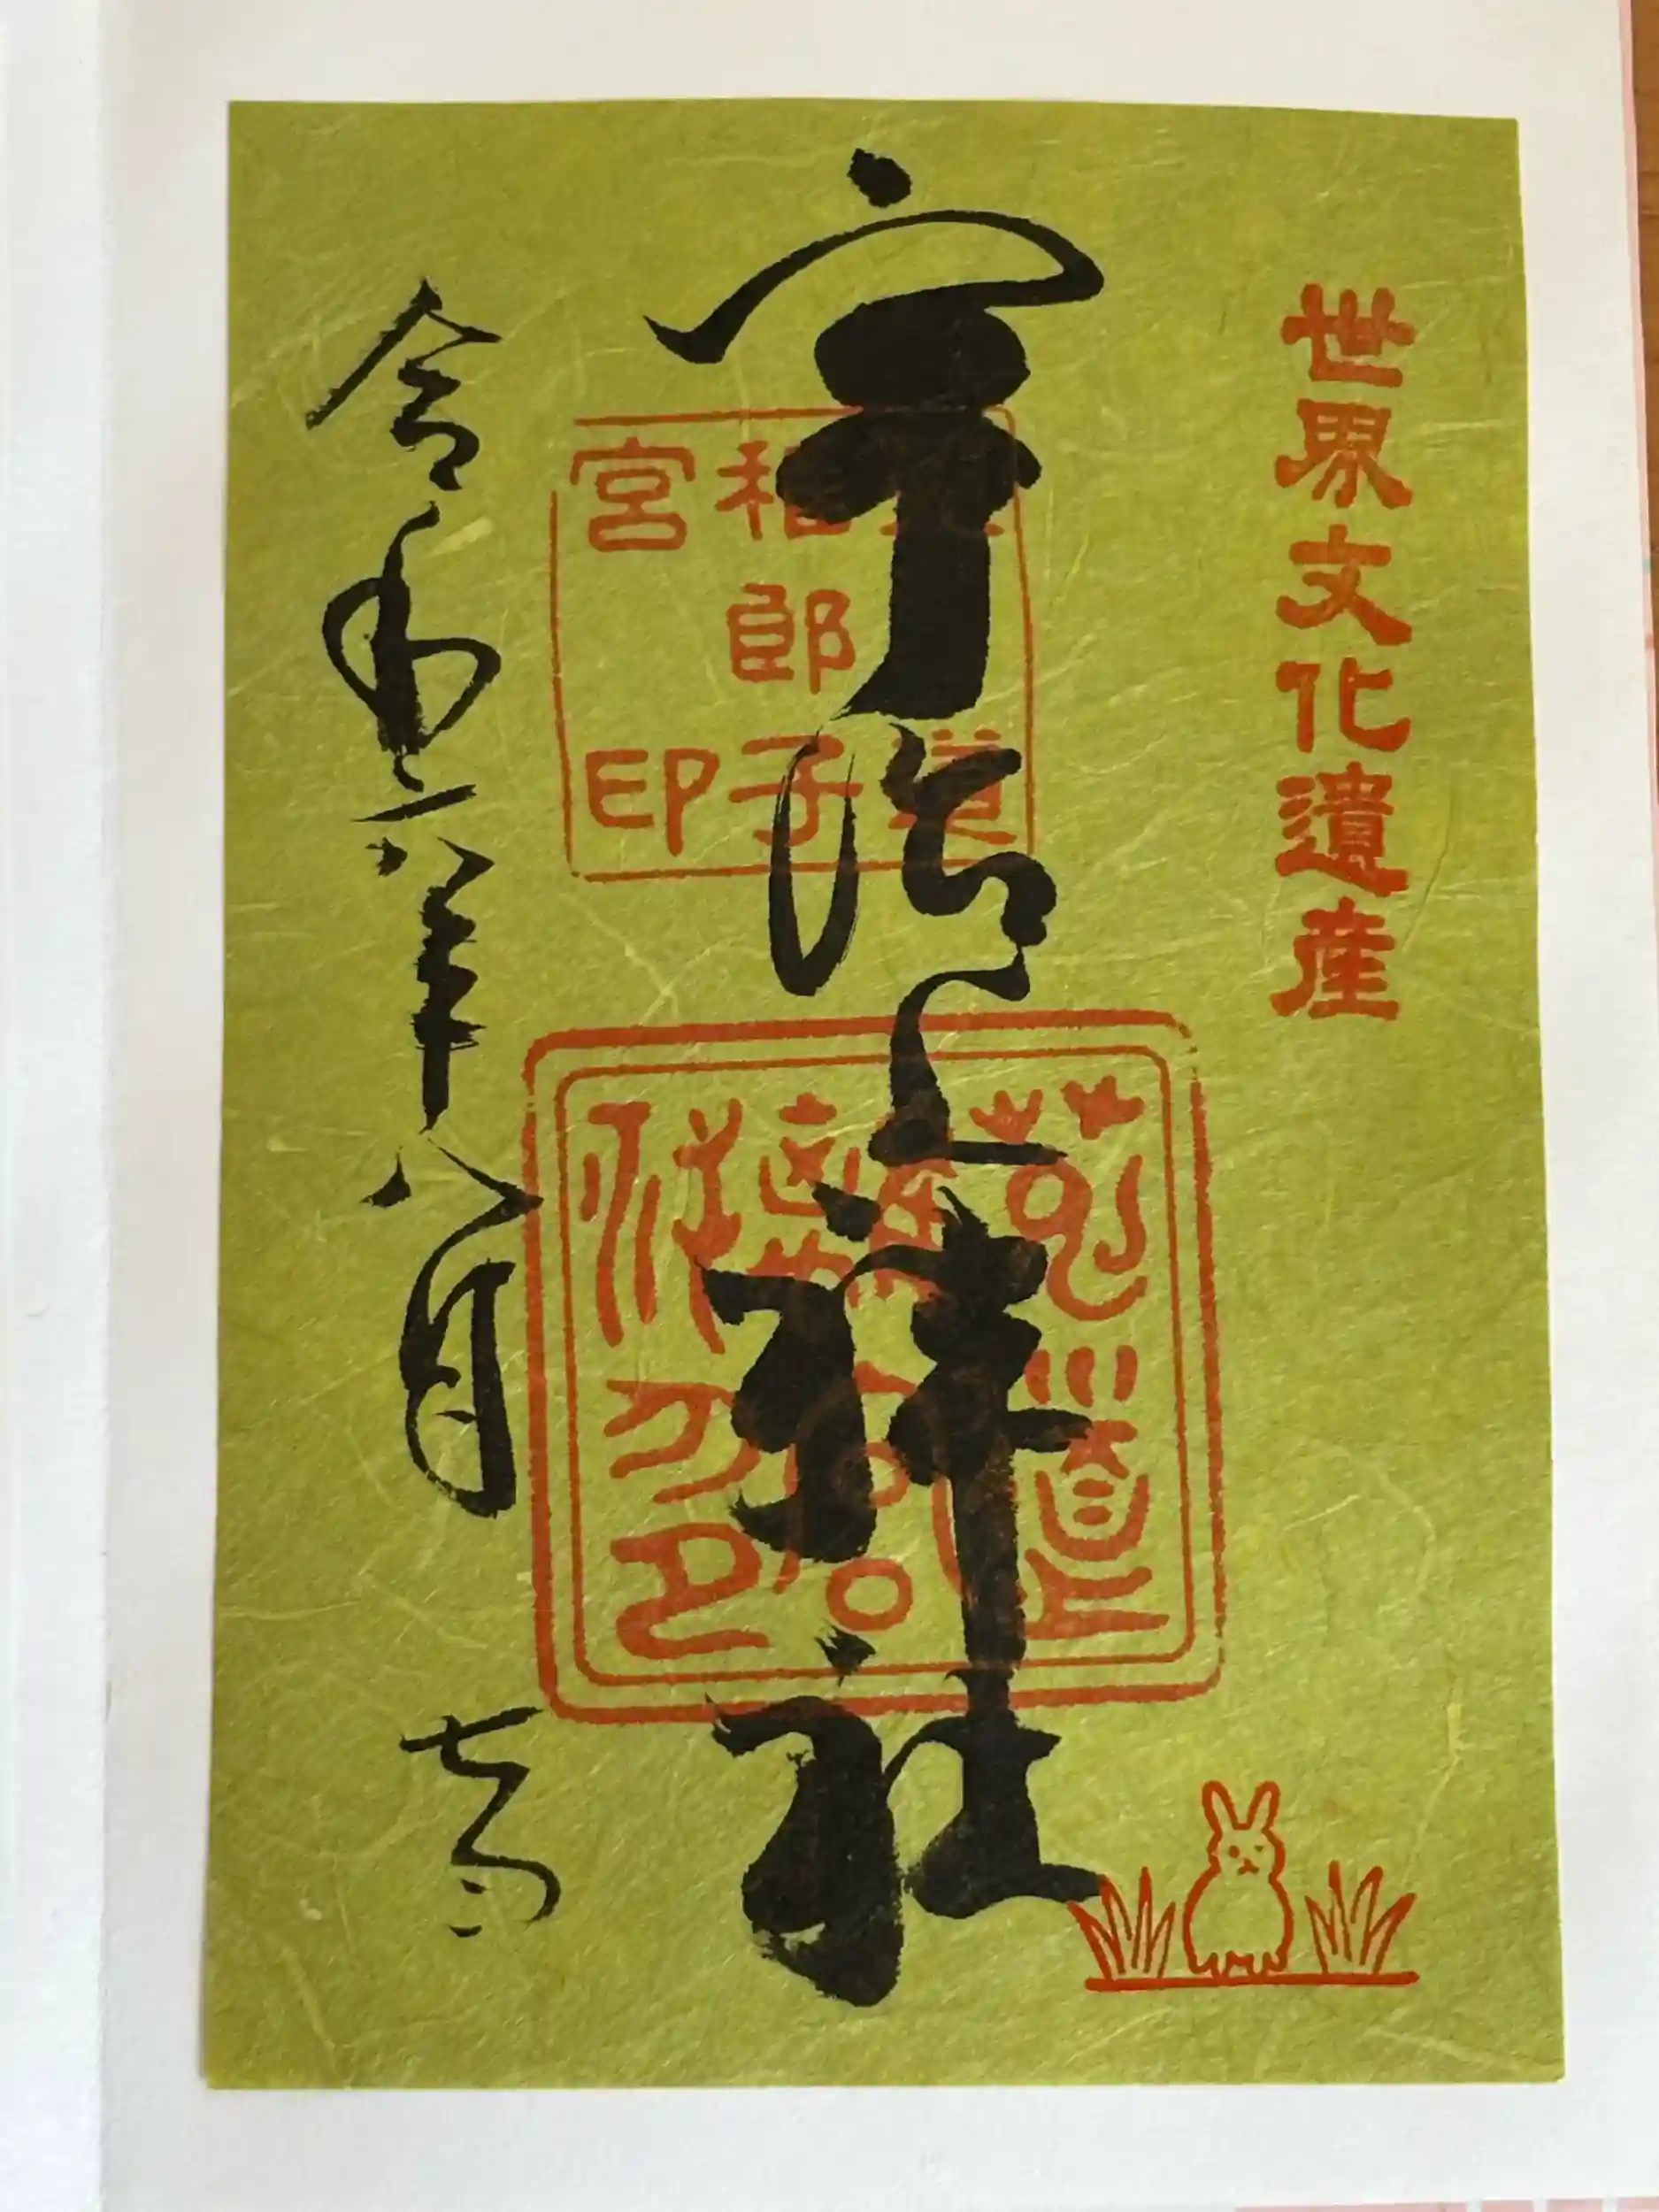 世界文化遺産
宇治上神社
菟道
稚郎子
宮印
令和六年八月七日